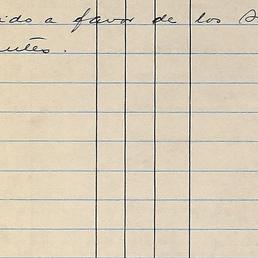 ido a favor de los S